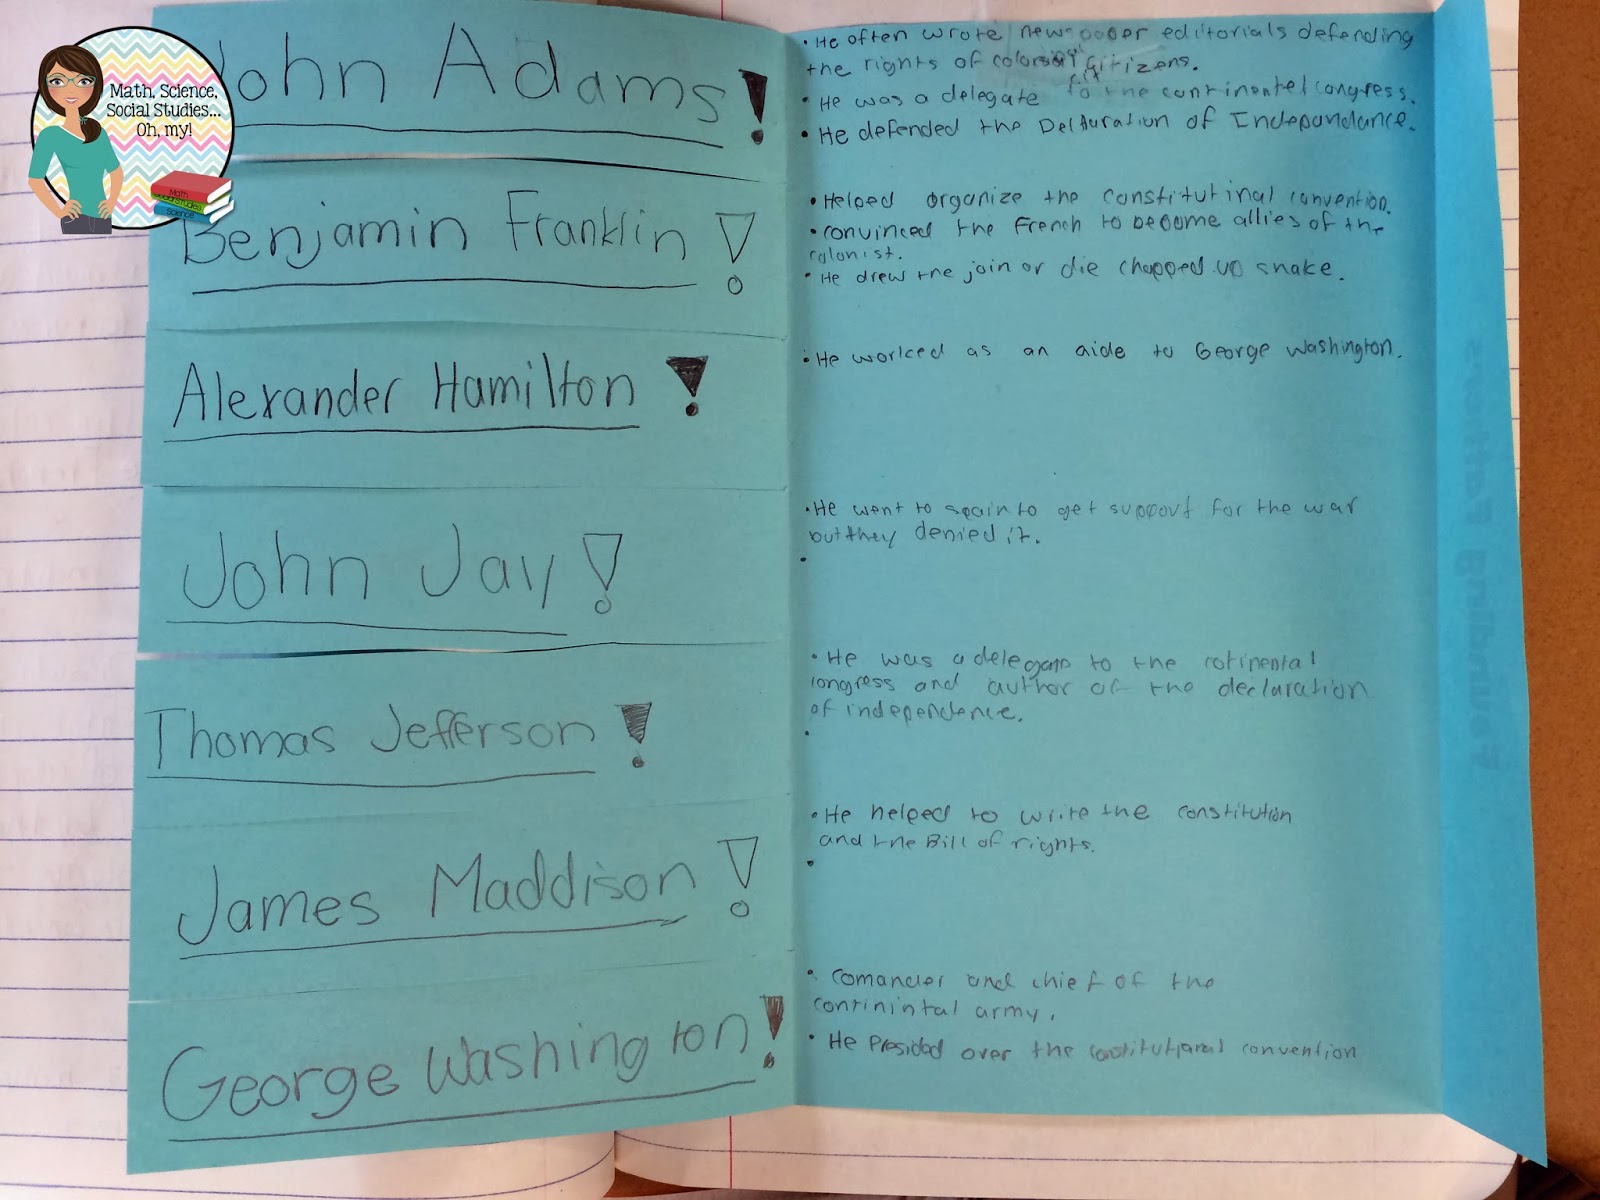 Math, Science,
Social Studies...
Oh, my!
Math
Social Studies
Science
John Adams!
• He often wrote newspaper editorials defending
the rights of colonial citizens.
• He was a delegate to the continentel congress.
• He defended the Delturation of Independance.
Benjamin Franklin!
• Helped organize the constitutinal convention.
• convinced the French to become allies of the
colonist.
• He drew the join or die chopped up snake.
Alexander Hamilton!
• He worked as an aide to George Washington.
John Jay!
• He went to spain to get support for the war
but they denied it.
•
Thomas Jefferson!
• He was a delegate to the cotinental
congress and author of the declaration
of independence.
•
James Maddison!
• He helped to write the constitution
and the Bill of rights.
•
George Washington!
• comander and chief of the
continintal army.
• He Presided over the constitutional convention
Founding Fathers